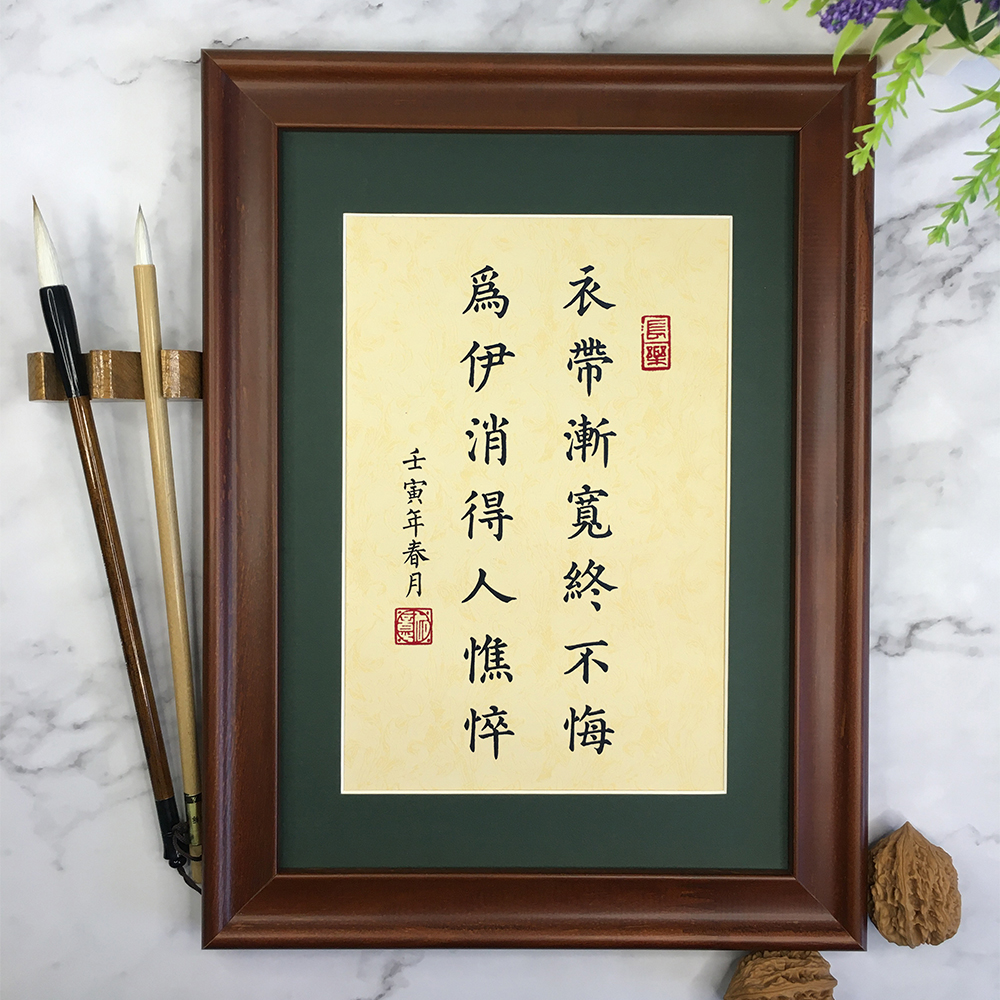 長樂
衣帶漸寬終不悔
爲伊消得人憔悴
壬寅年春月